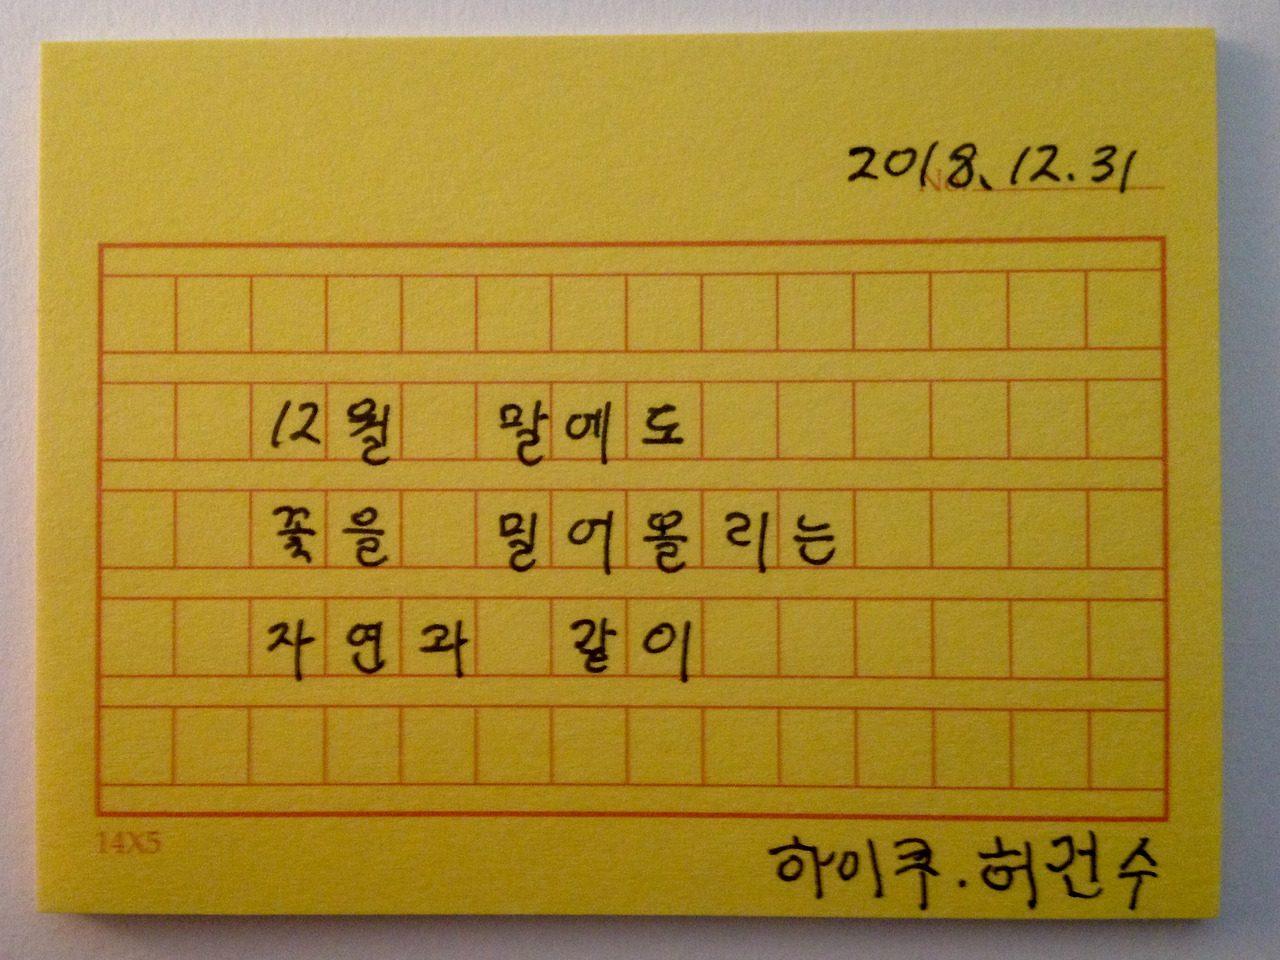 2018. 12. 31
No.
12월 말에도
꽃을 밀어올리는
자연과 같이
14X5
하이쿠. 허건수